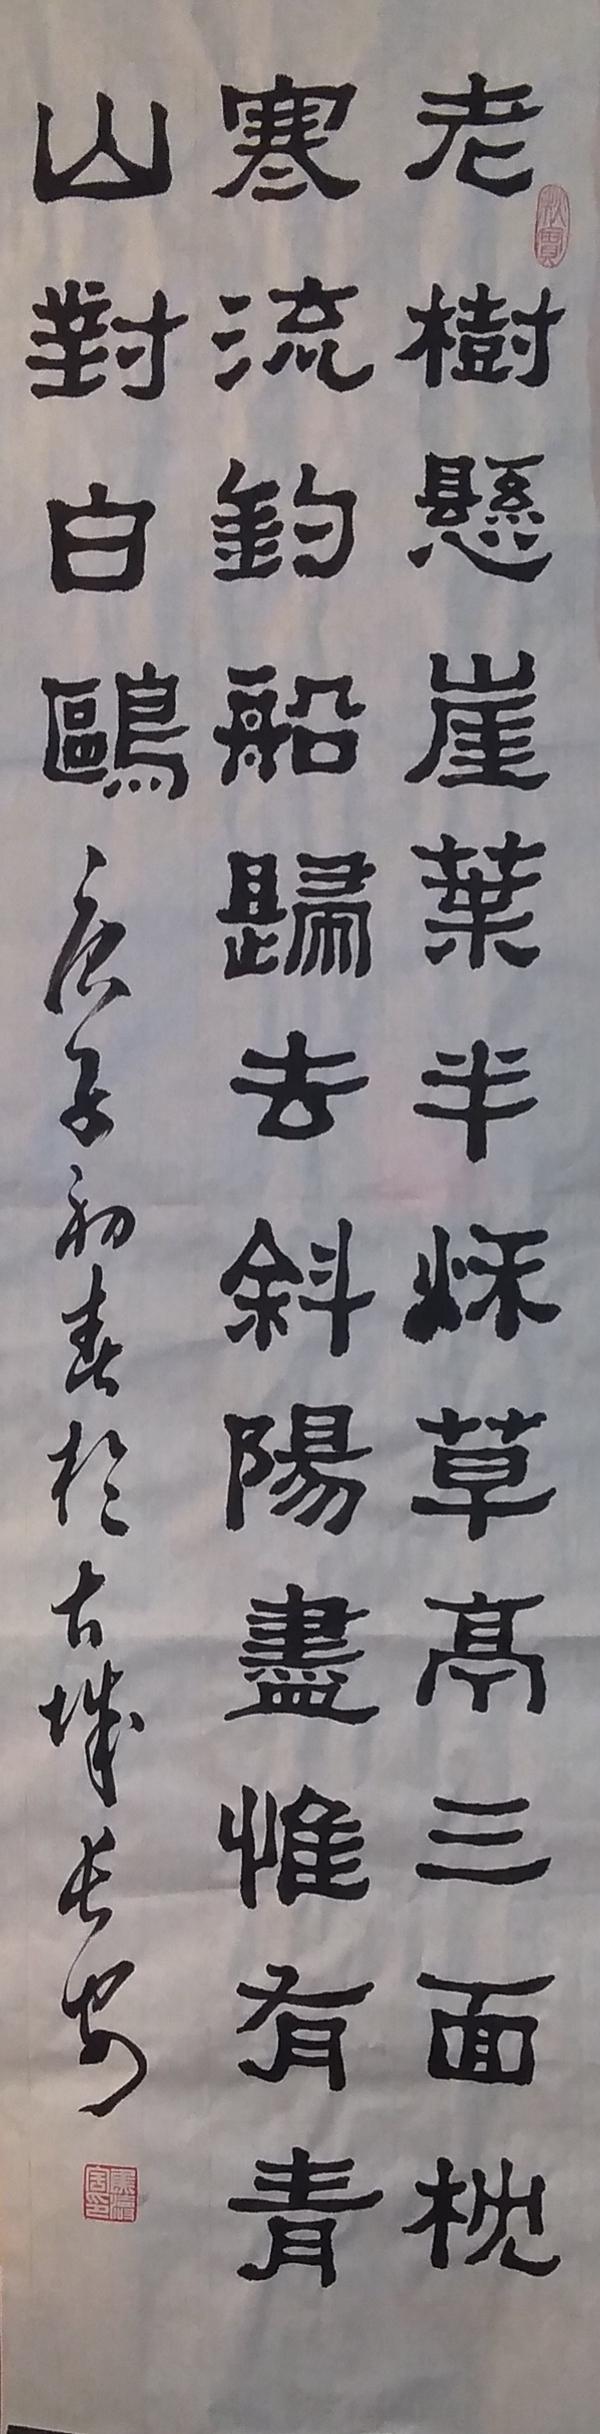 老樹懸崖葉半秌草亭三面枕
寒流釣船歸去斜陽盡惟有青
山對白鷗
庚子初春於古城長安